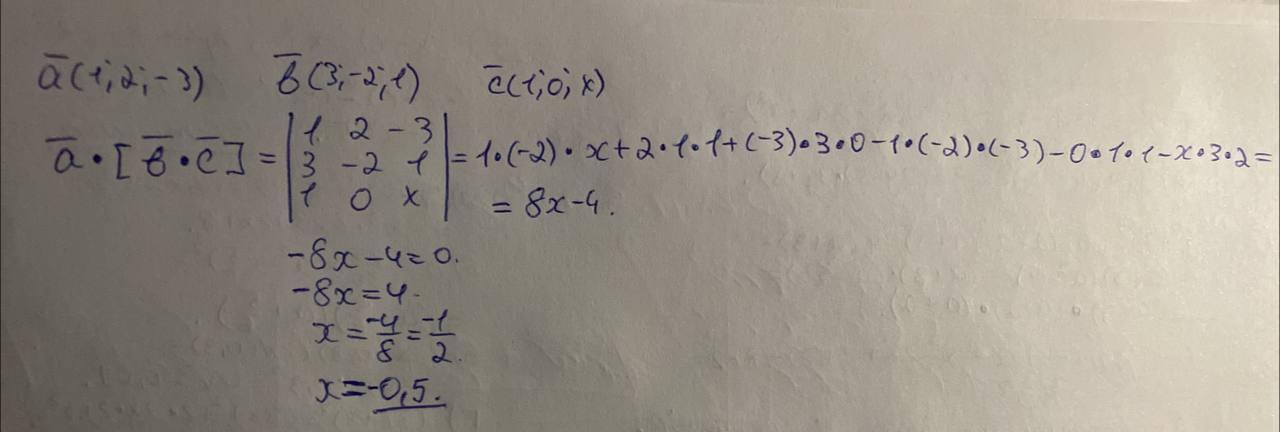 a̅(1;2;-3) b̅(3;-2;1) c̅(1;0;x)
a̅·[b̅·c̅] = |1 2 -3| = 1·(-2)·x+2·1·1+(-3)·3·0-1·(-2)·(-3)-0·1·1-x·3·2=
|3 -2 1|
|1 0 x| = 8x-4.
-8x-4=0.
-8x=4.
x=-4/8=-1/2.
x=-0,5.